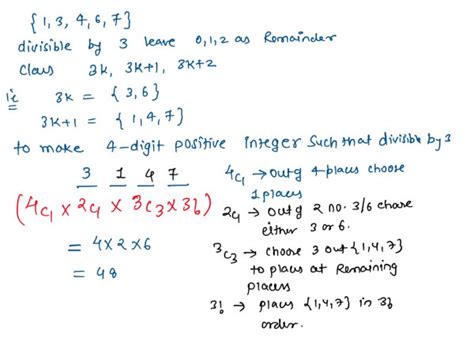 {1, 3, 4, 6, 7}
divisible by 3 leave 0,1,2 as Remainder
Class 3K, 3K+1, 3K+2
ie 3K = {3,6}
3K+1 = {1,4,7}
to make 4-digit positive integer such that divisible by 3
3 1 4 7
(4C1 × 2C1 × 3C3 × 3!)
= 4×2×6
= 48
4C1 → outg 4-places choose
1 places
2C1 → outg 2 no. 3/6 chose
either 3 or 6.
3C3 → choose 3 out {1,4,7}
to places at Remaining
places
3! → places {1,4,7} in 3!
order.